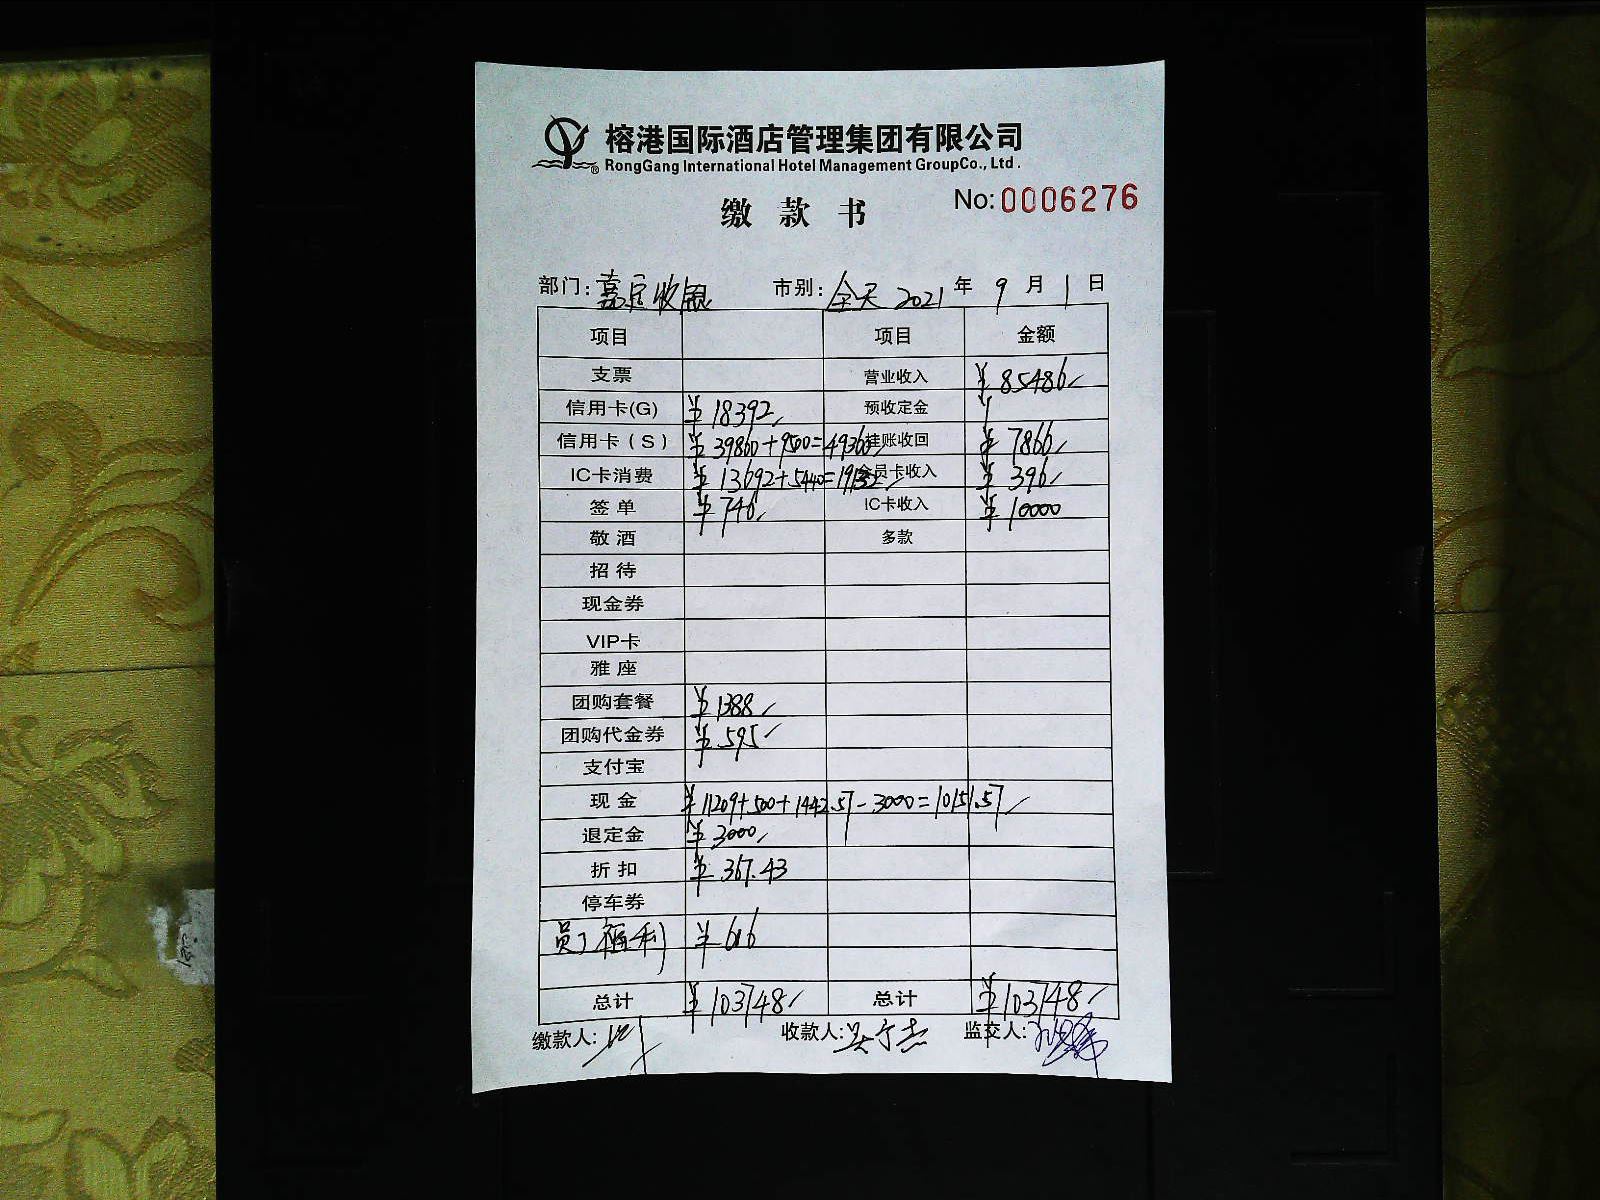 榕港国际酒店管理集团有限公司
RongGang International Hotel Management GroupCo., Ltd.
®
缴款书
No:0006276
部门:嘉宾收银 市别:全天 2021年9月1日
项目 项目 金额
支票 营业收入 ¥85486
信用卡(G) ¥18392 预收定金 ¥
信用卡(S) ¥39860+9500=49360 挂账收回 ¥7866
IC卡消费 ¥13692+5440=19132 会员卡收入 ¥396
签单 ¥746 IC卡收入 ¥10000
敬酒 多款
招待
现金券
VIP卡
雅座
团购套餐 ¥1388
团购代金券 ¥595
支付宝
现金 ¥11209+500+1442.57-3000=10151.57
退定金 ¥3000
折扣 ¥367.43
停车券
员工福利 ¥616
总计 ¥103748 总计 ¥103748
缴款人: 收款人: 监交人: